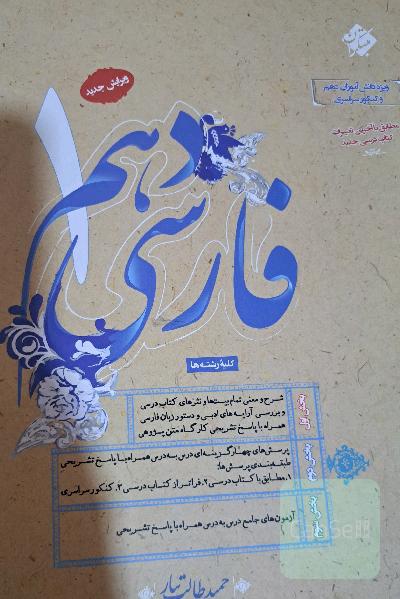 مبتکران
ویرایش جدید
ویژه دانش‌آموزان دهم
و کنکور سراسری
مطابق با آخرین تغییرات
کتاب درسی جدید
فارسی دهم
۱
کلیهٔ رشته‌ها
بخش اول
شرح و معنی تمام بیت‌ها و نثرهای کتاب درسی
و بررسی آرایه‌های ادبی و دستور زبان فارسی
همراه با پاسخ تشریحی کارگاه متن‌پژوهی
بخش دوم
پرسش‌های چهارگزینه‌ای درس به درس همراه با پاسخ تشریحی
طبقه‌بندی پرسش‌ها:
۱. مطابق با کتاب درسی ۲. فراتر از کتاب درسی ۳. کنکور سراسری
بخش سوم
آزمون‌های جامع درس به درس همراه با پاسخ تشریحی
حمید طالب‌تبار